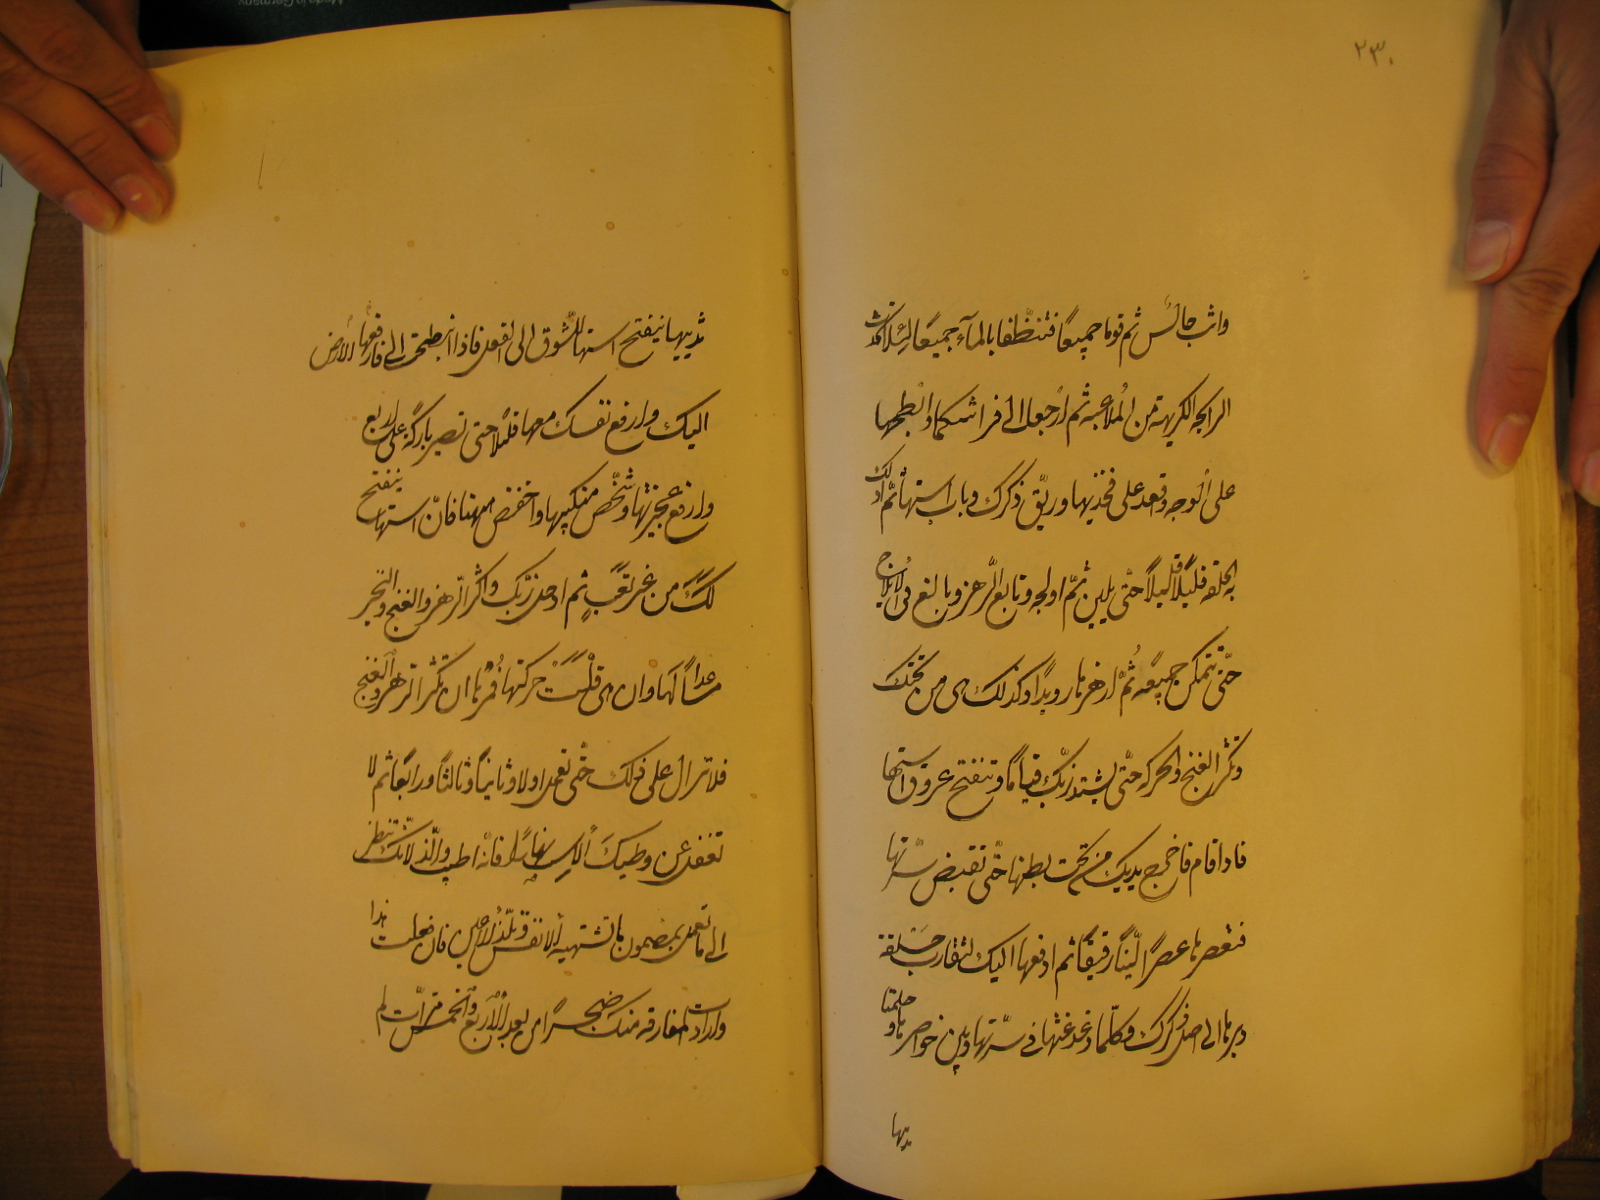 ۲۳۰
وانت جالس ثم قوما جميعًا فتنظّفا بالمآء جميعًا لئلا تحدث
الرايحه الكريهة من المُلاعبه ثم ارْجعا الى فراشكما وابْطحها
على ألوجه وقعد على فخذيها وريّق ذكرك وباب استها ثمّ ادلك
به الحلقه قليلًا قليلًا حتّى يلين ثمّ اولجه وتابع الرّهز وبالغ فى الايلاج
حتّى تتمكن جميعه ثُمّ ارهزها رويدًا وكذلك هى من تحتك
وتكثر الغنج والحركه حتّى يشتد زبّك قيامًا وتنفتح عروق استها
فاذا قام فاخرج يديك من تحت بطنها حتّى تقبض سرّتها
فتعصرها عصرًا ليّنًا رقيقًا ثم ادفعها اليك لتقارب حَلقة
دبرها الى اصل ذكرك وكلّما دغدغتها فى سرّتها وبين خواصرها وحلمتا
ديها
ثدييها ينفتح استها للشّوق الى الفعل فاذا انبطحت الى الارض فارفعها
اليك وارفع نفسك معها قليلًا حتى تصير باركة على اربع
وارفع عجيزتها وشخّص منكبيها واخفض ابهنا فانّ استها ينفتح
لك من غير تعبٍ ثم ادخل زبّك واكثر الرّهز والغنج والنخير
مساعدًا لها وان هى قلّت حركتها فمُرها ان تكثر الرهز والغنج
فلا تزال على ذلك حتّى تعمل اولا وثانيًا وثالثًا ورابعًا ثم لا
تغفل عن وطيكَ ألاست نهارًا فانّه اطيب والذّ لانّك تنظر
الى ما تعمل بمضمون ما تشتهيه ألانفس وتلذّ ألاعين فان فعلت هذا
وارادت لمفارقه منك ضجرًا من بعد ألاربع والخمس مرّات لم